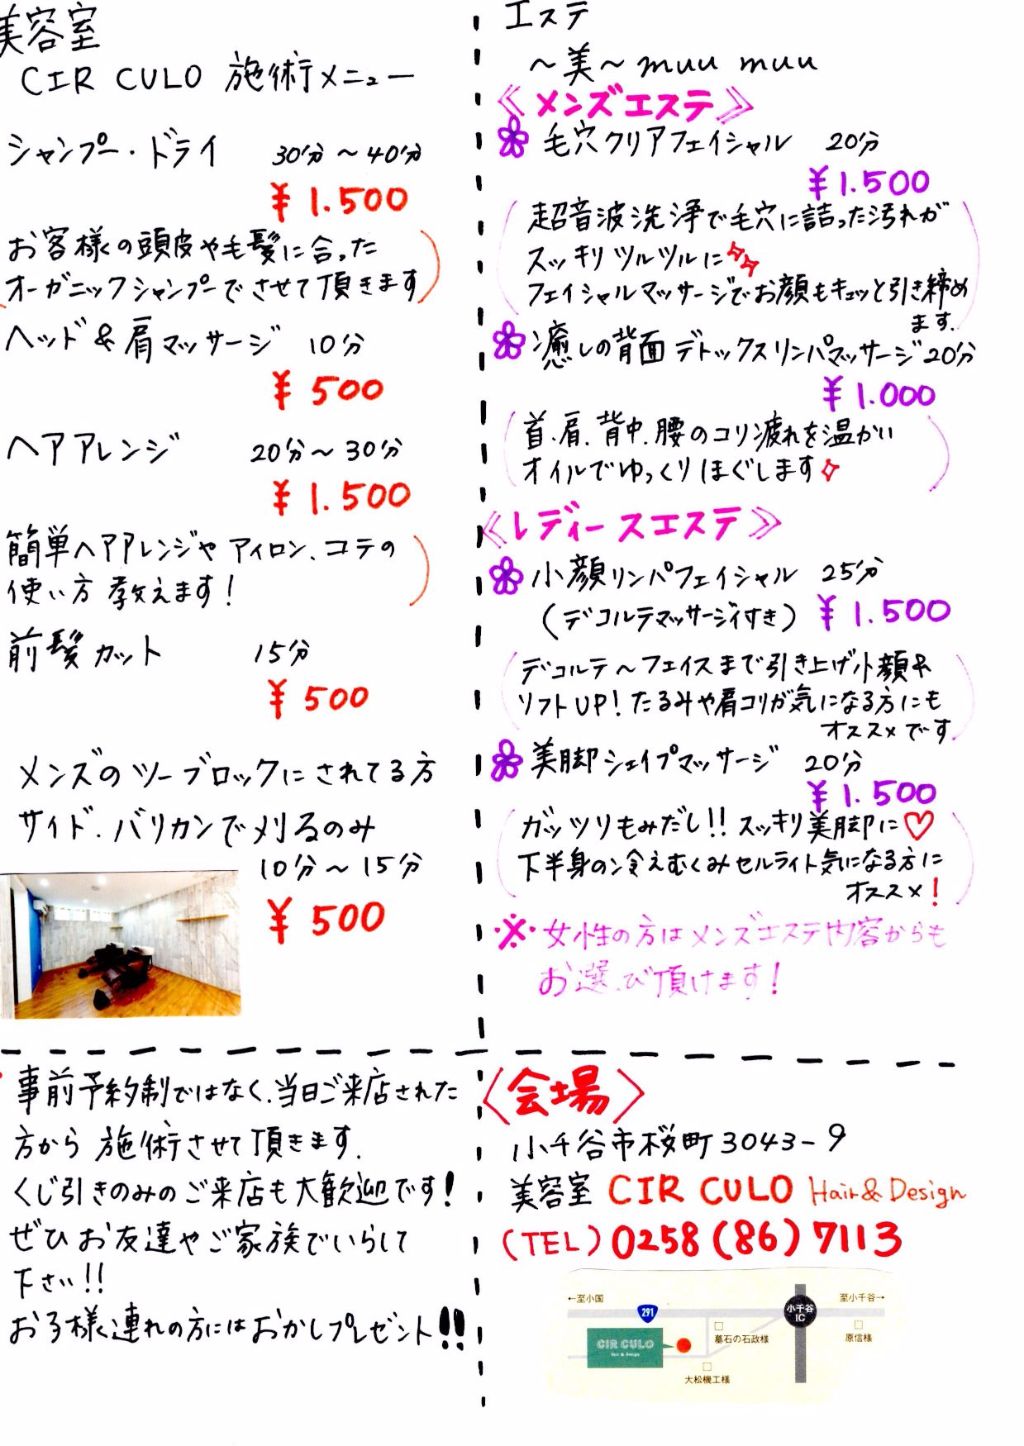 美容室
CIR CULO 施術メニュー
シャンプー・ドライ 30分～40分
¥1.500
お客様の頭皮や毛髪に合った
オーガニックシャンプーでさせて頂きます
ヘッド&肩マッサージ 10分
¥500
ヘアアレンジ 20分～30分
¥1.500
簡単ヘアアレンジや アイロン、コテの
使い方 教えます!
前髪カット 15分
¥500
メンズのツーブロックにされてる方
サイド、バリカンで刈るのみ
10分～15分
¥500
エステ
～美～muu muu
《メンズエステ》
毛穴クリアフェイシャル 20分
¥1.500
(超音波洗浄で毛穴に詰った汚れが
スッキリツルツルに
フェイシャルマッサージでお顔もキュッと引き締め
ます.)
癒しの背面デトックスリンパマッサージ20分
¥1.000
(首.肩.背中.腰のコリ疲れを温かい
オイルでゆっくりほぐします)
《レディースエステ》
小顔リンパフェイシャル 25分
(デコルテマッサージ付き) ¥1.500
(デコルテ～フェイスまで引き上げ小顔や
リフトUP!たるみや肩コリが気になる方にも
オススメです)
美脚シェイプマッサージ 20分
¥1.500
(ガッツリもみだし!!スッキリ美脚に♡
下半身の冷えむくみセルライト気になる方に
オススメ!)
※女性の方はメンズエステ内容からも
お選び頂けます!
事前予約制ではなく、当日ご来店された
方から 施術させて頂きます.
くじ引きのみのご来店も大歓迎です!
ぜひお友達やご家族でいらして
下さい!!
お子様連れの方にはおかしプレゼント!!
〈会場〉
小千谷市桜町3043-9
美容室 CIR CULO Hair&Design
(TEL) 0258(86)7113
←至小国
291
小千谷
IC
至小千谷→
CIR CULO
Hair & Design
墓石の石政様
原信様
大松機工様